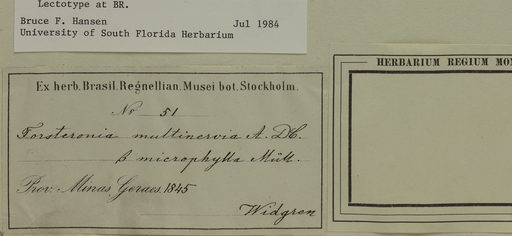 Lectotype at BR.
Bruce F. Hansen Jul 1984
University of South Florida Herbarium
Ex herb. Brasil. Regnellian. Musei bot. Stockholm.
No 51
Forsteronia multinervia A. DC.
β microphylla Müll.
Prov. Minas Geraes. 1845
Widgren
HERBARIUM REGIUM MON